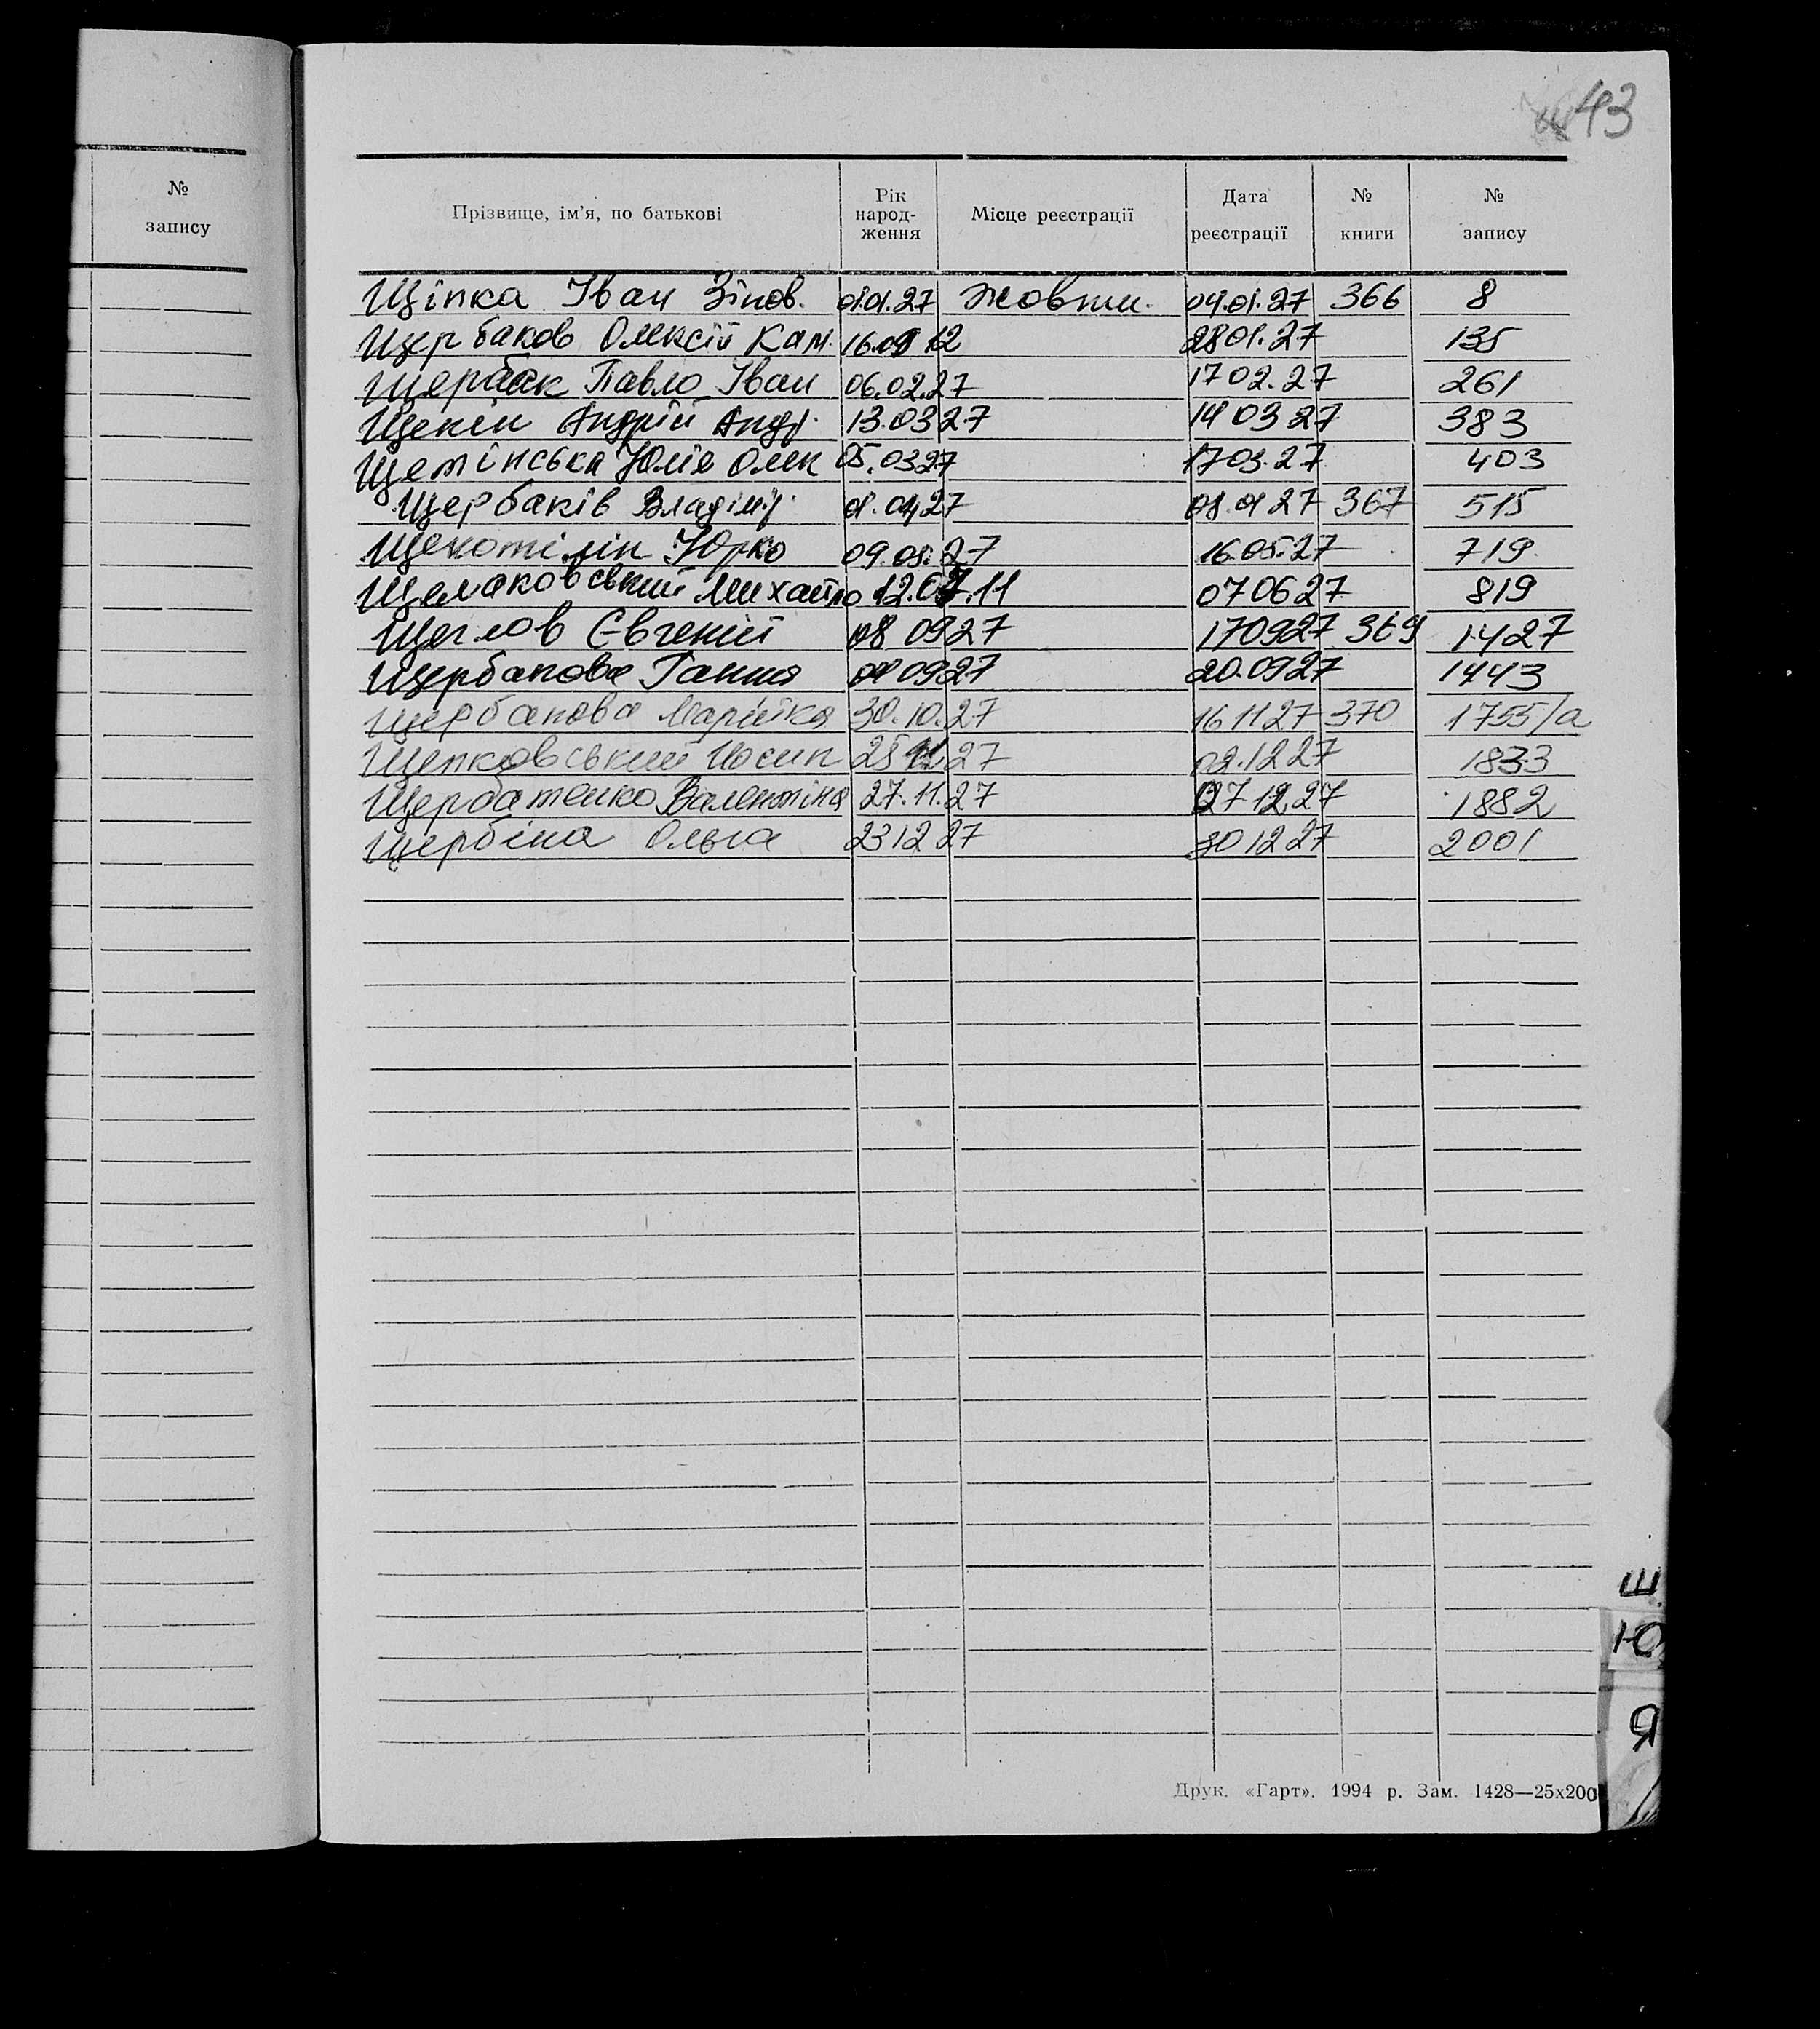 43
№
запису
Прізвище, ім'я, по батькові
Рік народ-ження
Місце реєстрації
Дата реєстрації
№ книги
№ запису
Щіпка Іван Зінов. 01.01.27 Жовтн. 04.01.27 366 8
Щербаков Олексій Кам. 16.09 12 28 01.27 135
Щербак Павло Іван 06.02.27 17 02.27 261
Щекін Андрій Андр. 13.03 27 14 03 27 383
Щетінська Юлія Олек 05.03 27 17 03.27 403
Щербаків Владімір 01.04 27 08.04 27 367 515
Щекотілін Юрко 09.05.27 16.05.27 719
Михайло 12.07.11 07 06 27 819
Щеглов Євгеній 08 09 27 17 09 27 369 1427
Щербакова Ганна 09 27 20.09 27 1443
Щербакова Марійка 30.10.27 16 11 27 370 1755/а
Щепковський Йосип 25 11 27 02.12 27 1833
Щербатенко Валентіна 27.11.27 07 12.27 1882
Щербіна Ольга 23 12 27 30 12 27 2001
Щ
Ю
Я
Друк. «Гарт». 1994 р. Зам. 1428—25х200